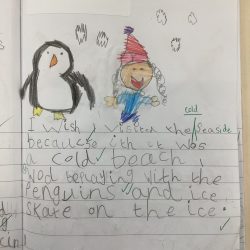 cold
I wish I visited the seaside
because ifh it was
a cold beach I
wod be playing with the
penguins and ice
skate on the ice.